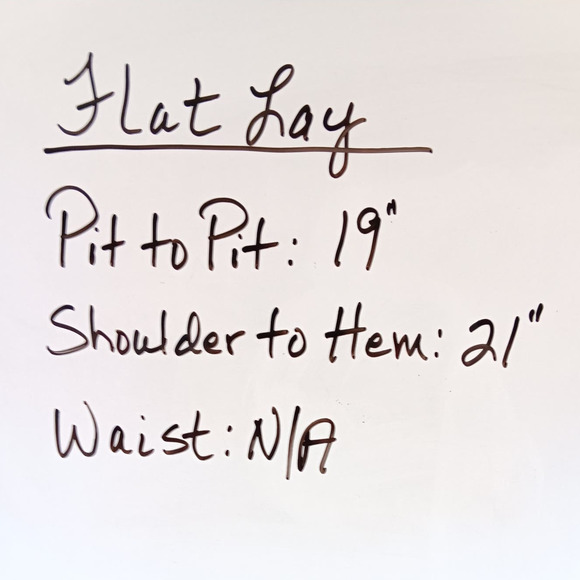 Flat Lay
Pit to Pit: 19"
Shoulder to Hem: 21"
Waist: N/A